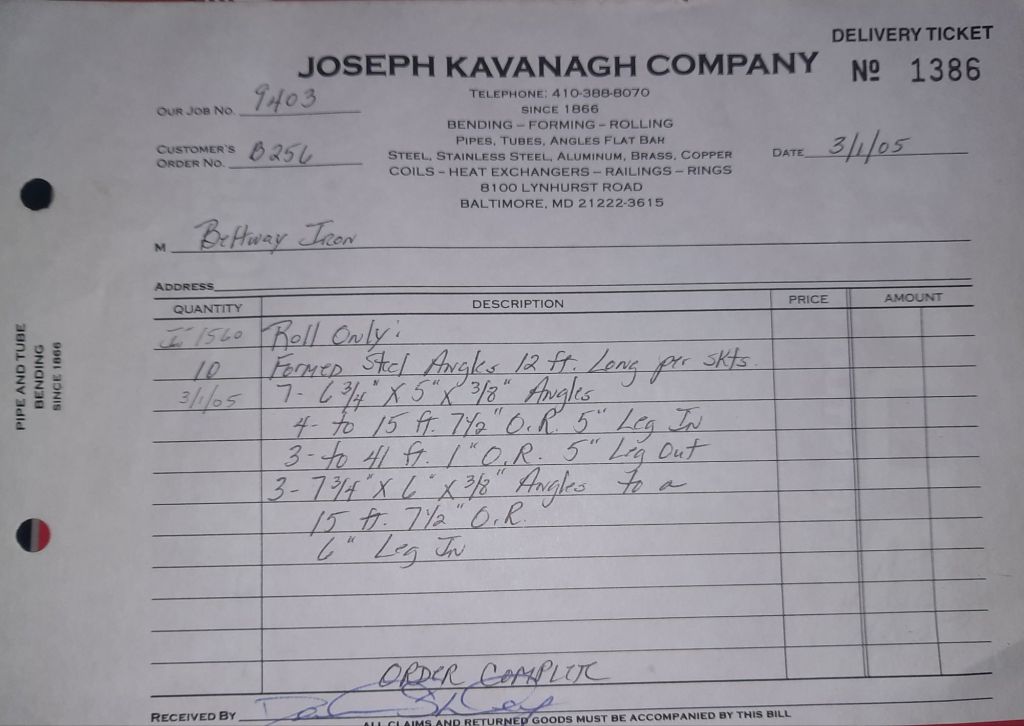 DELIVERY TICKET
JOSEPH KAVANAGH COMPANY
Nº 1386
TELEPHONE: 410-388-8070
SINCE 1866
BENDING – FORMING – ROLLING
PIPES, TUBES, ANGLES FLAT BAR
STEEL, STAINLESS STEEL, ALUMINUM, BRASS, COPPER
COILS – HEAT EXCHANGERS – RAILINGS – RINGS
8100 LYNHURST ROAD
BALTIMORE, MD 21222-3615
OUR JOB NO. 9403
CUSTOMER'S
ORDER NO. B256
DATE 3/1/05
M Beltway Iron
ADDRESS
QUANTITY DESCRIPTION PRICE AMOUNT
1560 Roll Only:
10 Formed Steel Angles 12 ft. Long per skts.
3/1/05 7- 6 3/4" X 5" X 3/8" Angles
4- to 15 ft. 7 1/2" O.R. 5" Leg In
3- to 41 ft. 1" O.R. 5" Leg Out
3- 7 3/4" X 6" X 3/8" Angles to a
15 ft. 7 1/2" O.R.
6" Leg In
ORDER COMPLETE
RECEIVED BY
ALL CLAIMS AND RETURNED GOODS MUST BE ACCOMPANIED BY THIS BILL
PIPE AND TUBE
BENDING
SINCE 1866